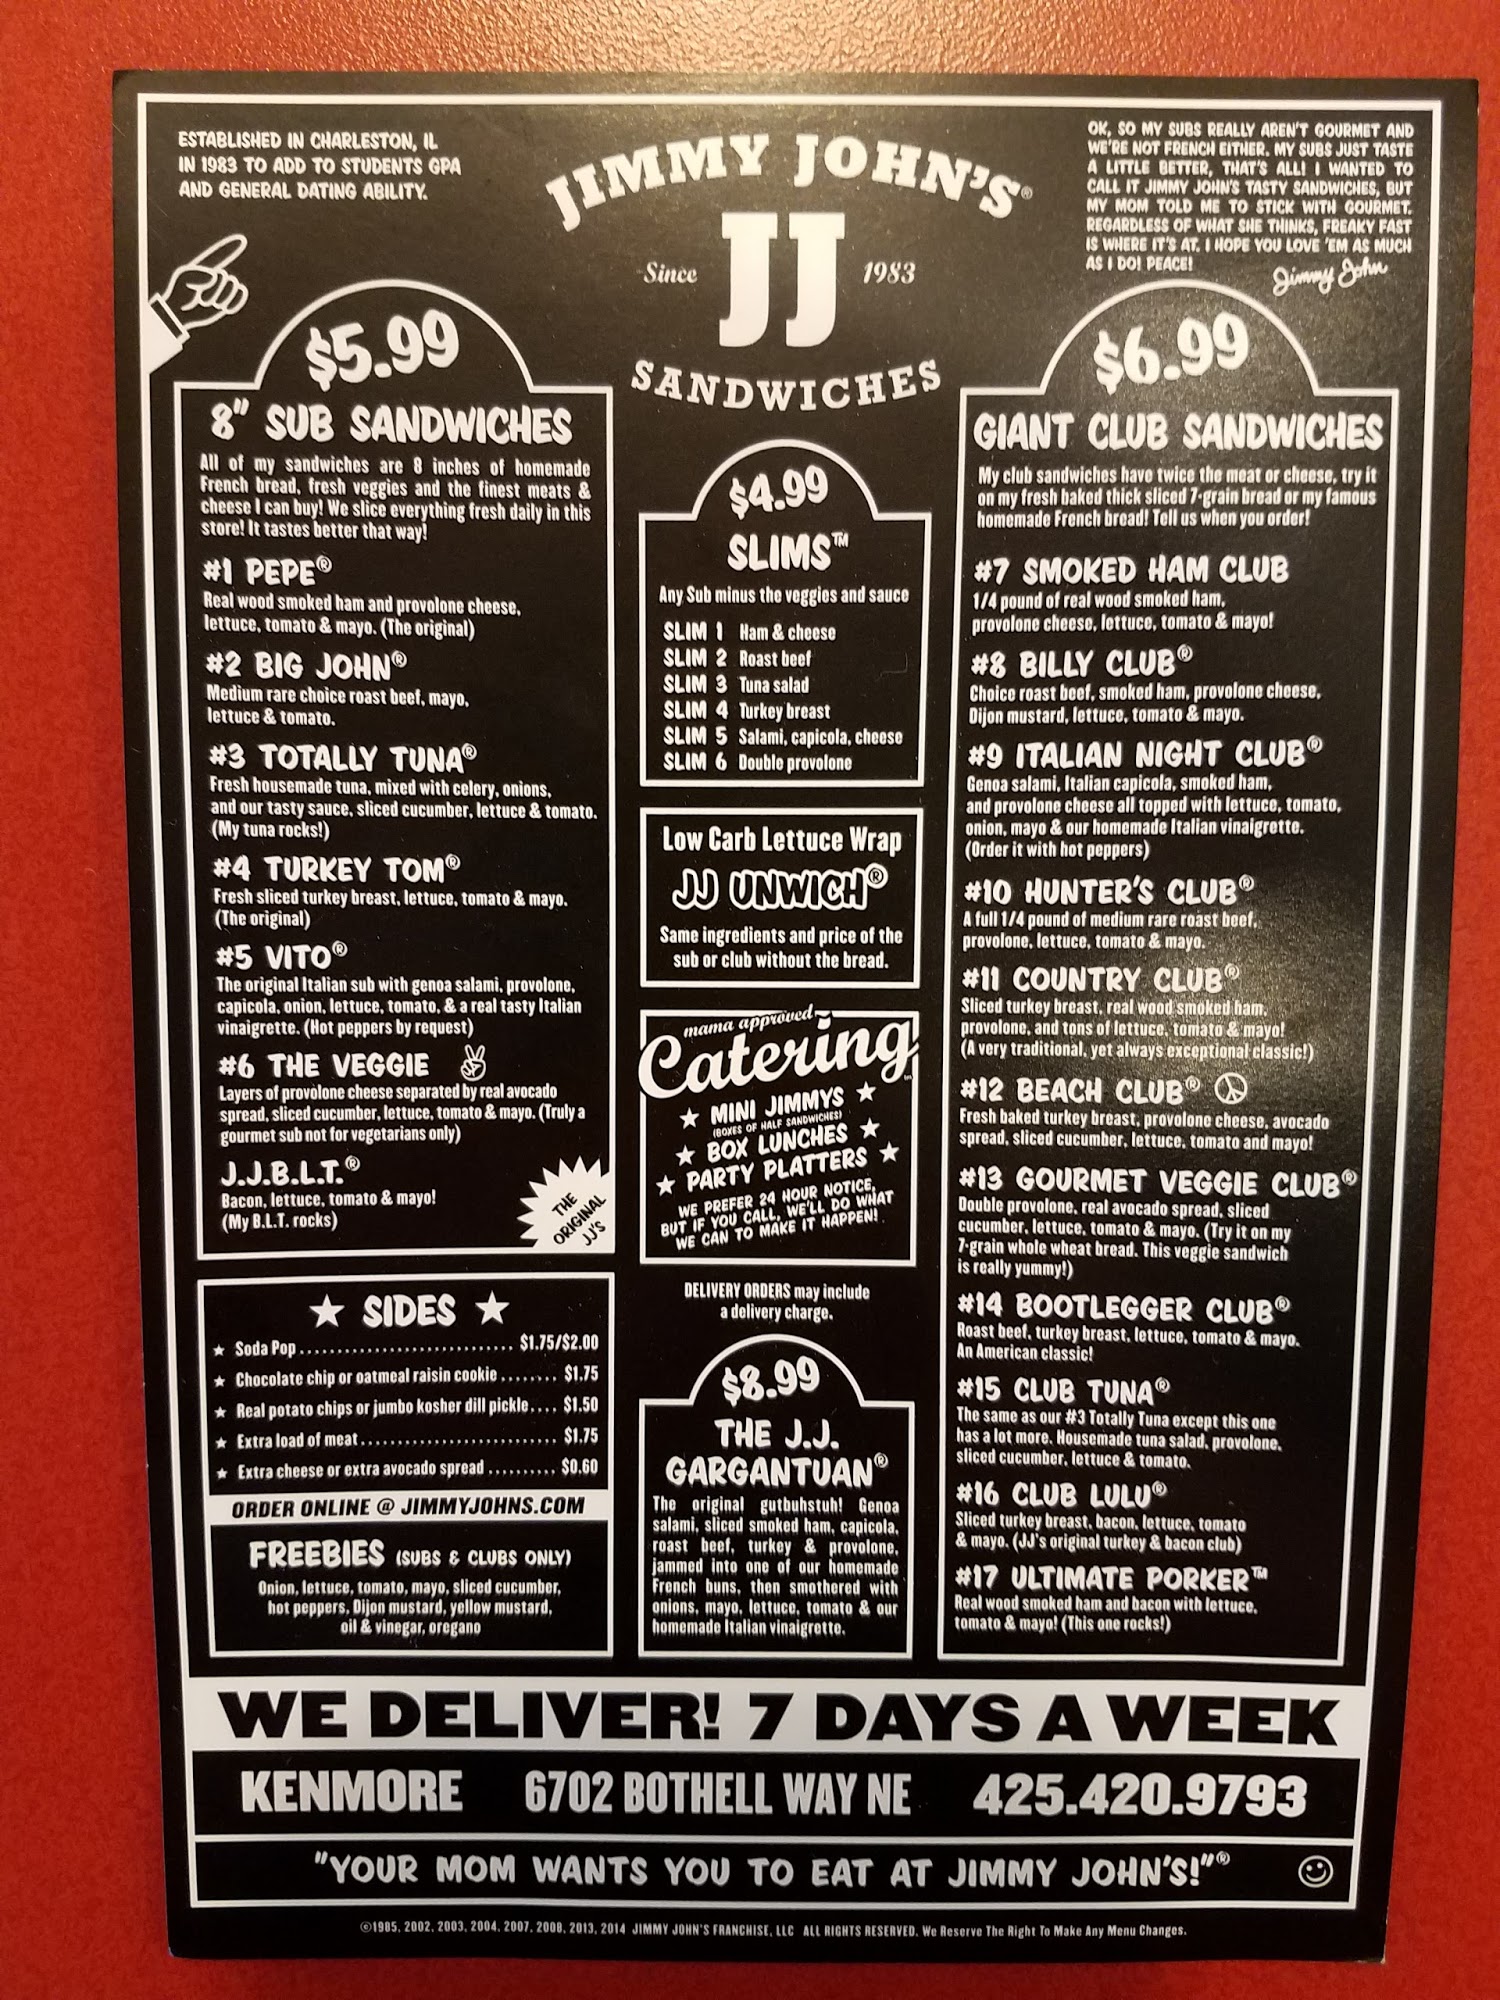 ESTABLISHED IN CHARLESTON, IL
IN 1983 TO ADD TO STUDENTS GPA
AND GENERAL DATING ABILITY.
JIMMY JOHN'S®
Since JJ 1983
SANDWICHES
OK, SO MY SUBS REALLY AREN'T GOURMET AND
WE'RE NOT FRENCH EITHER. MY SUBS JUST TASTE
A LITTLE BETTER, THAT'S ALL! I WANTED TO
CALL IT JIMMY JOHN'S TASTY SANDWICHES, BUT
MY MOM TOLD ME TO STICK WITH GOURMET.
REGARDLESS OF WHAT SHE THINKS, FREAKY FAST
IS WHERE IT'S AT. I HOPE YOU LOVE 'EM AS MUCH
AS I DO! PEACE!
Jimmy John
$5.99
8" SUB SANDWICHES
All of my sandwiches are 8 inches of homemade
French bread, fresh veggies and the finest meats &
cheese I can buy! We slice everything fresh daily in this
store! It tastes better that way!
#1 PEPE®
Real wood smoked ham and provolone cheese,
lettuce, tomato & mayo. (The original)
#2 BIG JOHN®
Medium rare choice roast beef, mayo,
lettuce & tomato.
#3 TOTALLY TUNA®
Fresh housemade tuna, mixed with celery, onions,
and our tasty sauce, sliced cucumber, lettuce & tomato.
(My tuna rocks!)
#4 TURKEY TOM®
Fresh sliced turkey breast, lettuce, tomato & mayo.
(The original)
#5 VITO®
The original Italian sub with genoa salami, provolone,
capicola, onion, lettuce, tomato, & a real tasty Italian
vinaigrette. (Hot peppers by request)
#6 THE VEGGIE
Layers of provolone cheese separated by real avocado
spread, sliced cucumber, lettuce, tomato & mayo. (Truly a
gourmet sub not for vegetarians only)
J.J.B.L.T.®
Bacon, lettuce, tomato & mayo!
(My B.L.T. rocks)
THE
ORIGINAL
JJ'S
★ SIDES ★
★ Soda Pop.............................. $1.75/$2.00
★ Chocolate chip or oatmeal raisin cookie ........ $1.75
★ Real potato chips or jumbo kosher dill pickle.... $1.50
★ Extra load of meat........................... $1.75
★ Extra cheese or extra avocado spread .......... $0.60
ORDER ONLINE @ JIMMYJOHNS.COM
FREEBIES (SUBS & CLUBS ONLY)
Onion, lettuce, tomato, mayo, sliced cucumber,
hot peppers, Dijon mustard, yellow mustard,
oil & vinegar, oregano
$4.99
SLIMS™
Any Sub minus the veggies and sauce
SLIM 1 Ham & cheese
SLIM 2 Roast beef
SLIM 3 Tuna salad
SLIM 4 Turkey breast
SLIM 5 Salami, capicola, cheese
SLIM 6 Double provolone
Low Carb Lettuce Wrap
JJ UNWICH®
Same ingredients and price of the
sub or club without the bread.
mama approved
Catering
★ MINI JIMMYS ★
(BOXES OF HALF SANDWICHES)
★ BOX LUNCHES ★
★ PARTY PLATTERS ★
WE PREFER 24 HOUR NOTICE,
BUT IF YOU CALL, WE'LL DO WHAT
WE CAN TO MAKE IT HAPPEN!
DELIVERY ORDERS may include
a delivery charge.
$8.99
THE J.J.
GARGANTUAN®
The original gutbuhstuh! Genoa
salami, sliced smoked ham, capicola,
roast beef, turkey & provolone,
jammed into one of our homemade
French buns, then smothered with
onions, mayo, lettuce, tomato & our
homemade Italian vinaigrette.
$6.99
GIANT CLUB SANDWICHES
My club sandwiches have twice the meat or cheese, try it
on my fresh baked thick sliced 7-grain bread or my famous
homemade French bread! Tell us when you order!
#7 SMOKED HAM CLUB
1/4 pound of real wood smoked ham,
provolone cheese, lettuce, tomato & mayo!
#8 BILLY CLUB®
Choice roast beef, smoked ham, provolone cheese,
Dijon mustard, lettuce, tomato & mayo.
#9 ITALIAN NIGHT CLUB®
Genoa salami, Italian capicola, smoked ham,
and provolone cheese all topped with lettuce, tomato,
onion, mayo & our homemade Italian vinaigrette.
(Order it with hot peppers)
#10 HUNTER'S CLUB®
A full 1/4 pound of medium rare roast beef,
provolone, lettuce, tomato & mayo.
#11 COUNTRY CLUB®
Sliced turkey breast, real wood smoked ham,
provolone, and tons of lettuce, tomato & mayo!
(A very traditional, yet always exceptional classic!)
#12 BEACH CLUB®
Fresh baked turkey breast, provolone cheese, avocado
spread, sliced cucumber, lettuce, tomato and mayo!
#13 GOURMET VEGGIE CLUB®
Double provolone, real avocado spread, sliced
cucumber, lettuce, tomato & mayo. (Try it on my
7-grain whole wheat bread. This veggie sandwich
is really yummy!)
#14 BOOTLEGGER CLUB®
Roast beef, turkey breast, lettuce, tomato & mayo.
An American classic!
#15 CLUB TUNA®
The same as our #3 Totally Tuna except this one
has a lot more. Housemade tuna salad, provolone,
sliced cucumber, lettuce & tomato.
#16 CLUB LULU®
Sliced turkey breast, bacon, lettuce, tomato
& mayo. (JJ's original turkey & bacon club)
#17 ULTIMATE PORKER™
Real wood smoked ham and bacon with lettuce,
tomato & mayo! (This one rocks!)
WE DELIVER! 7 DAYS A WEEK
KENMORE 6702 BOTHELL WAY NE 425.420.9793
"YOUR MOM WANTS YOU TO EAT AT JIMMY JOHN'S!"®
©1985, 2002, 2003, 2004, 2007, 2008, 2013, 2014 JIMMY JOHN'S FRANCHISE, LLC ALL RIGHTS RESERVED. We Reserve The Right To Make Any Menu Changes.